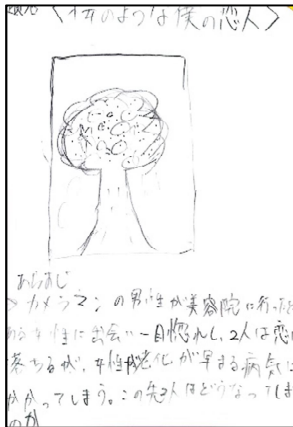 題名 〈桜のような僕の恋人〉
あらすじ
> カメラマンの男性が美容院に行ったと
ある女性に出会い一目惚れし、2人は恋に
落ちるが、女性が老化が早まる病気に
かかってしまう。この先2人はどうなってしま
のか